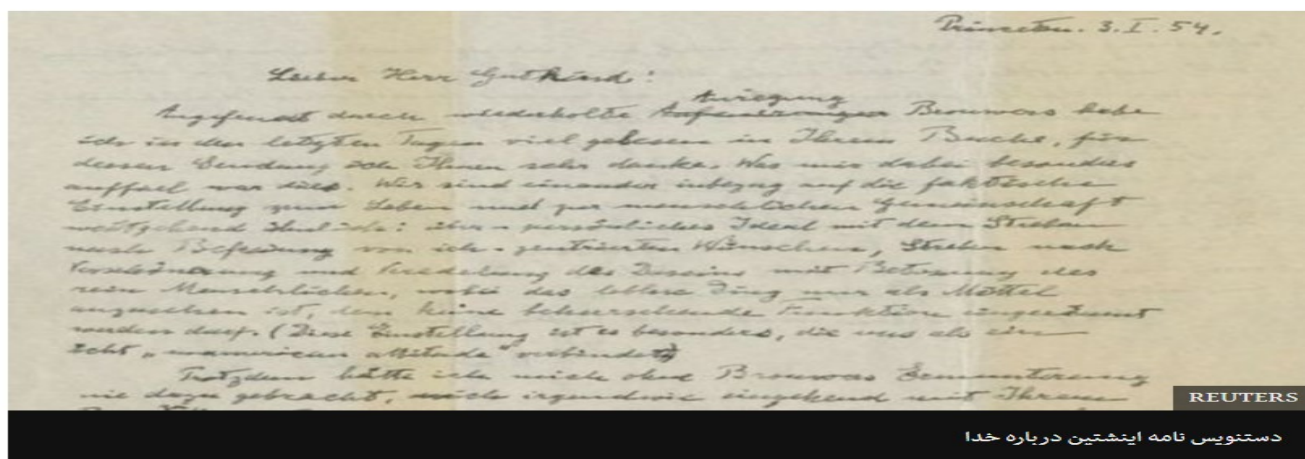 Princeton. 3. I. 54.
Lieber Herr Gutkind!
Anregung
Angefeuert durch wiederholte Brouwers habe
ich in den letzten Tagen viel gelesen in Ihrem Buche, für
dessen Sendung ich Ihnen sehr danke. Was mir dabei besonders
auffiel war dies. Wir sind einander inbezug auf die faktische
Einstellung zum Leben und zur menschlichen Gemeinschaft
weitgehend ähnlich: persönliches Ideal mit dem Streben
nach Befreiung von ich-zentrierten Wünschen, Streben nach
Verschönerung und Veredelung des Daseins mit Betonung des
rein Menschlichen, wobei das leblose Ding nur als Mittel
anzusehen ist, dem keine beherrschende Funktion eingeräumt
werden darf. (Diese Einstellung ist es besonders, die uns als ein
echt „unamerican attitude" verbindet)
Trotzdem hätte ich mich ohne Brouwers Ermunterung
nie dazu gebracht, mich irgendwie eingehend mit Ihrem
REUTERS
دستنویس نامه اینشتین درباره خدا